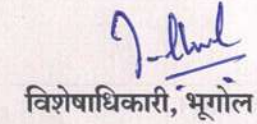 विशेषाधिकारी, भूगोल